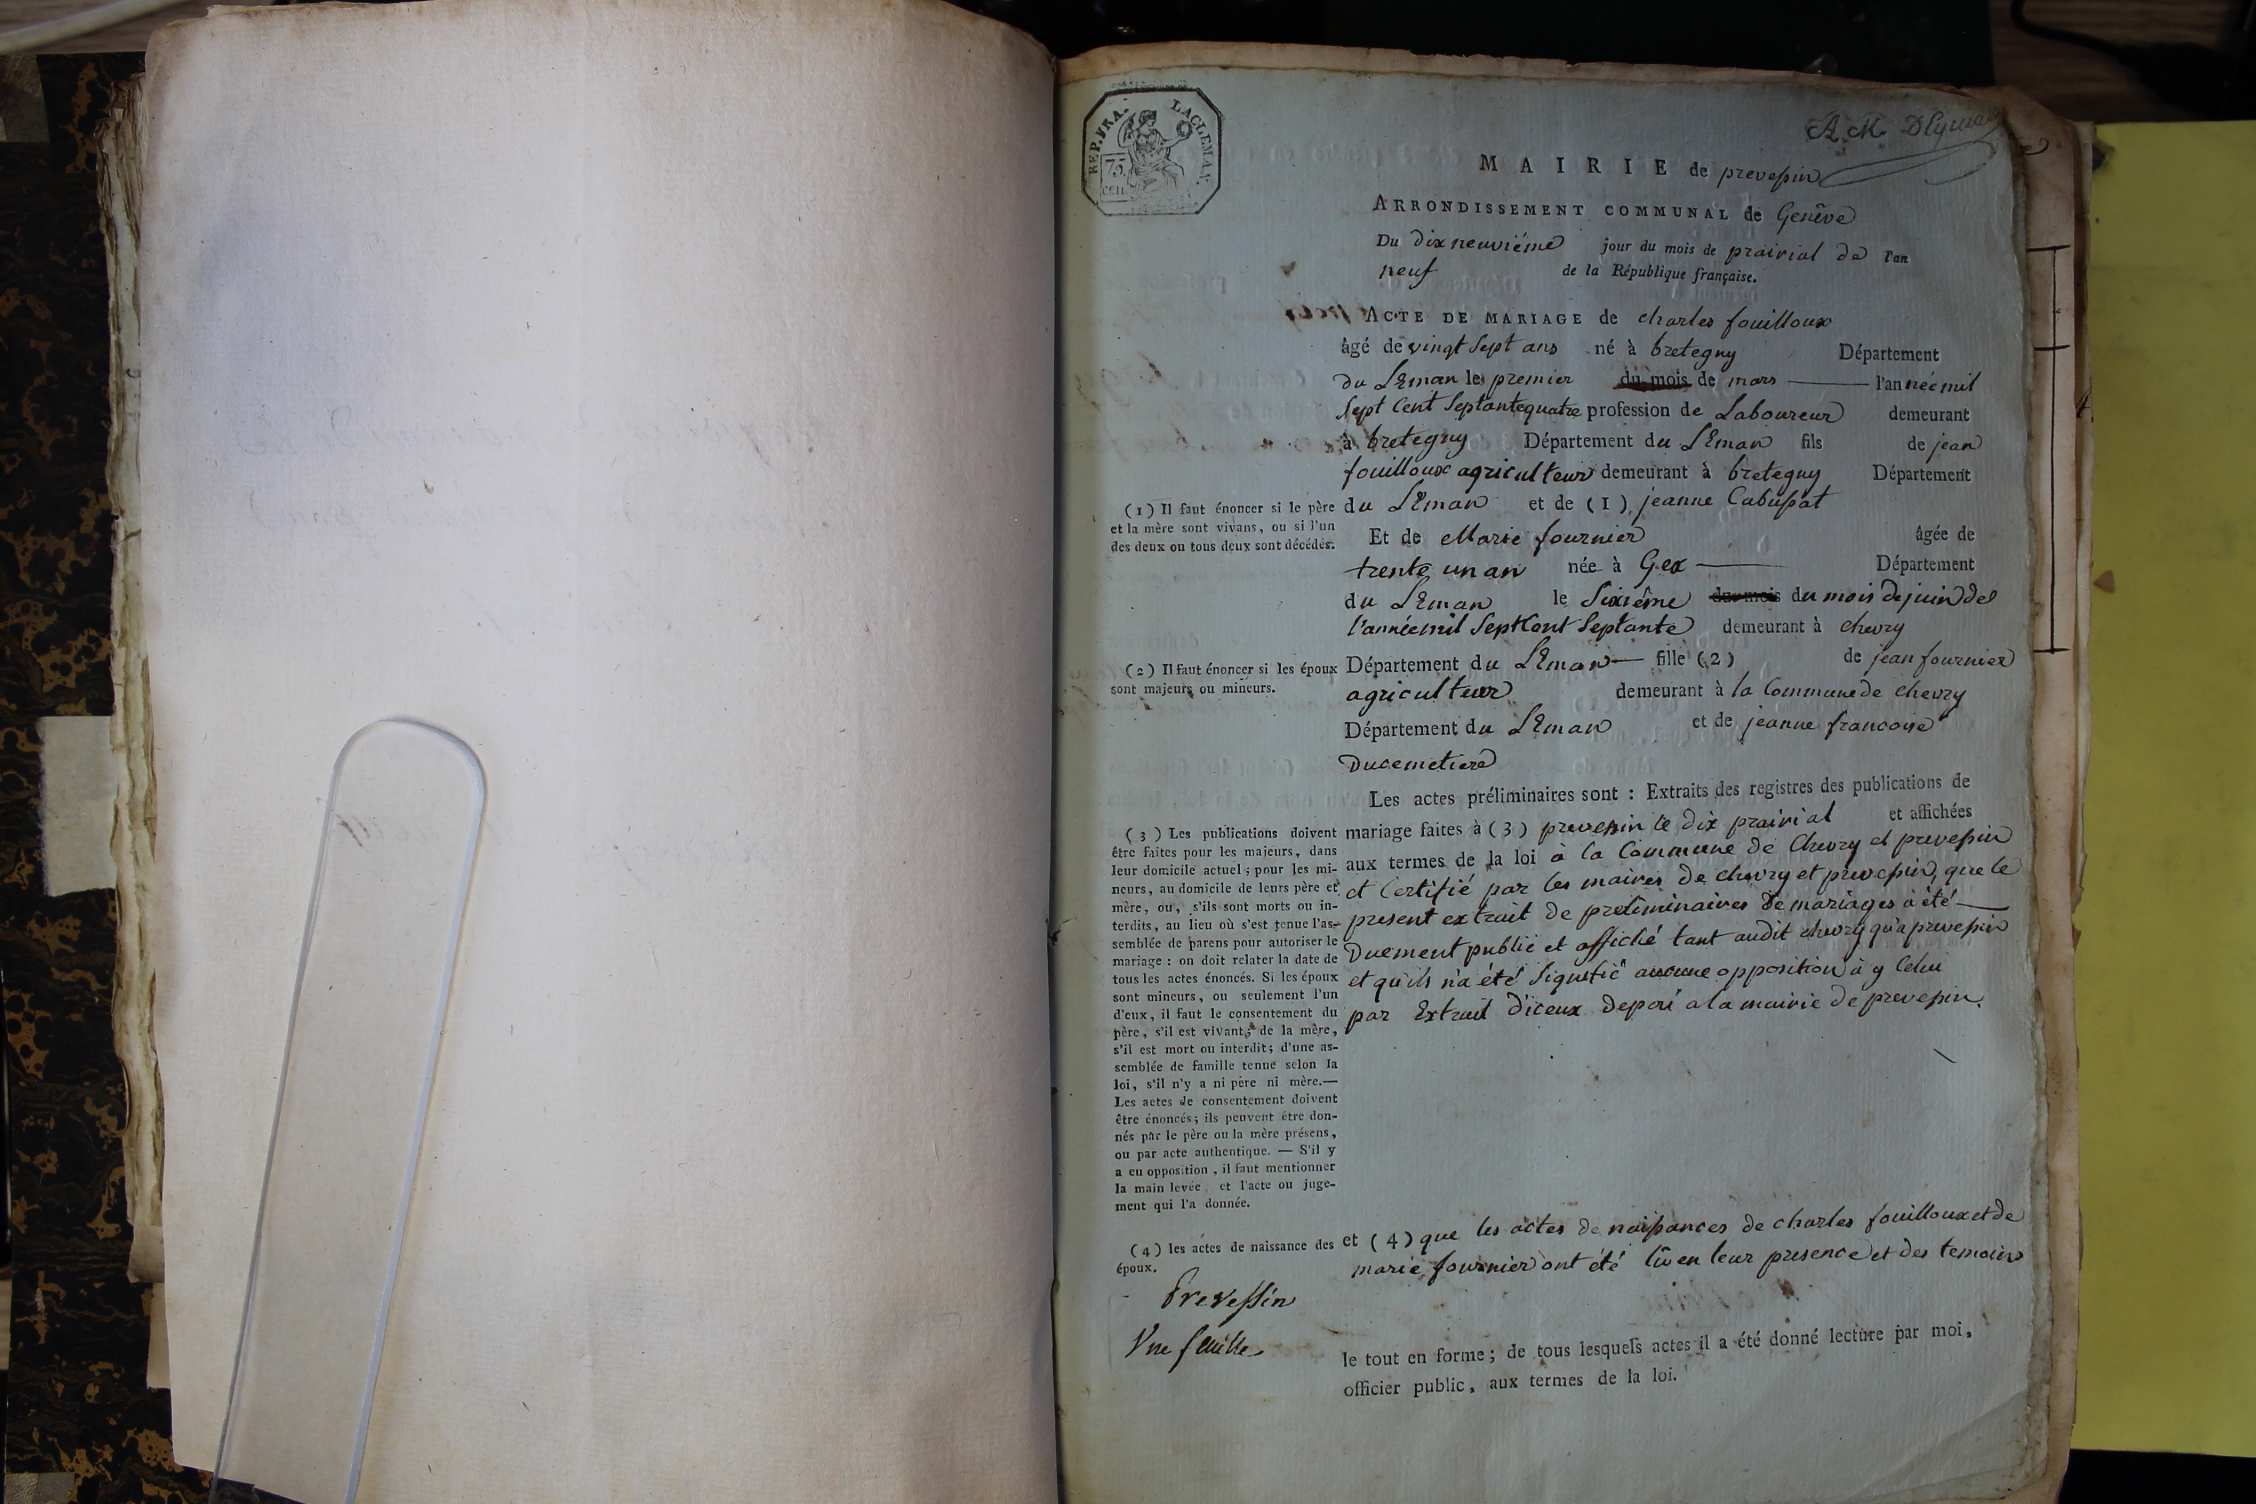 REP. FRA.
LAC. LEMAN.
75
cen.
A. M.
MAIRIE de prevessin
ARRONDISSEMENT COMMUNAL de Genêve
Du dix neuviéme jour du mois de prairial de l'an
neuf de la République française.
ACTE DE MARIAGE de charles fouilloux
âgé de vingt Sept ans né à bretegny Département
du LEman le premier du mois de mars l'année mil
Sept Cent Septantequatre profession de Laboureur demeurant
à bretegny Département du LEman fils de jean
fouilloux agriculteur demeurant à bretegny Département
du LEman et de (1) jeanne Cabussat
(1) Il faut énoncer si le père
et la mère sont vivans, ou si l'un
des deux ou tous deux sont décédés.
Et de Marie fournier âgée de
trente un an née à Gex Département
du LEman le Sixiême du mois du mois de juin de
l'année mil Sept Cent Septante demeurant à chevry
(2) Il faut énoncer si les époux
sont majeurs ou mineurs.
Département du LEman fille (2) de jean fournier
agriculteur demeurant à la Commune de chevry
Département du LEman et de jeanne francoise
Ducemetiere
Les actes préliminaires sont : Extraits des registres des publications de
mariage faites à (3) prevessin le dix prairial et affichées
aux termes de la loi à la Commune de Chevry et prevessin
et Certifié par les maires de chevry et prevessin, que le
present extrait de preliminaires de mariages à été
Duement publié et affiché tant audit chevry qu'a prevessin
et qu'ils n'a été Signifié aucune opposition à y Celui
par Extrait d'iceux deposé a la mairie de prevessin.
(3) Les publications doivent
être faites pour les majeurs, dans
leur domicile actuel ; pour les mi-
neurs, au domicile de leurs père et
mère, ou, s'ils sont morts ou in-
terdits, au lieu où s'est tenue l'as-
semblée de parens pour autoriser le
mariage : on doit relater la date de
tous les actes énoncés. Si les époux
sont mineurs, ou seulement l'un
d'eux, il faut le consentement du
père, s'il est vivant ; de la mère,
s'il est mort ou interdit ; d'une as-
semblée de famille tenue selon la
loi, s'il n'y a ni père ni mère.—
Les actes de consentement doivent
être énoncés ; ils peuvent être don-
nés par le père ou la mère présens,
ou par acte authentique. — S'il y
a eu opposition, il faut mentionner
la main levée, et l'acte ou juge-
ment qui l'a donnée.
(4) les actes de naissance des
époux.
et (4) que les actes de naissances de charles fouilloux et de
marie fournier ont été lû en leur presence et des temoins
Prevessin
Une feuille
le tout en forme ; de tous lesquels actes il a été donné lecture par moi,
officier public, aux termes de la loi.